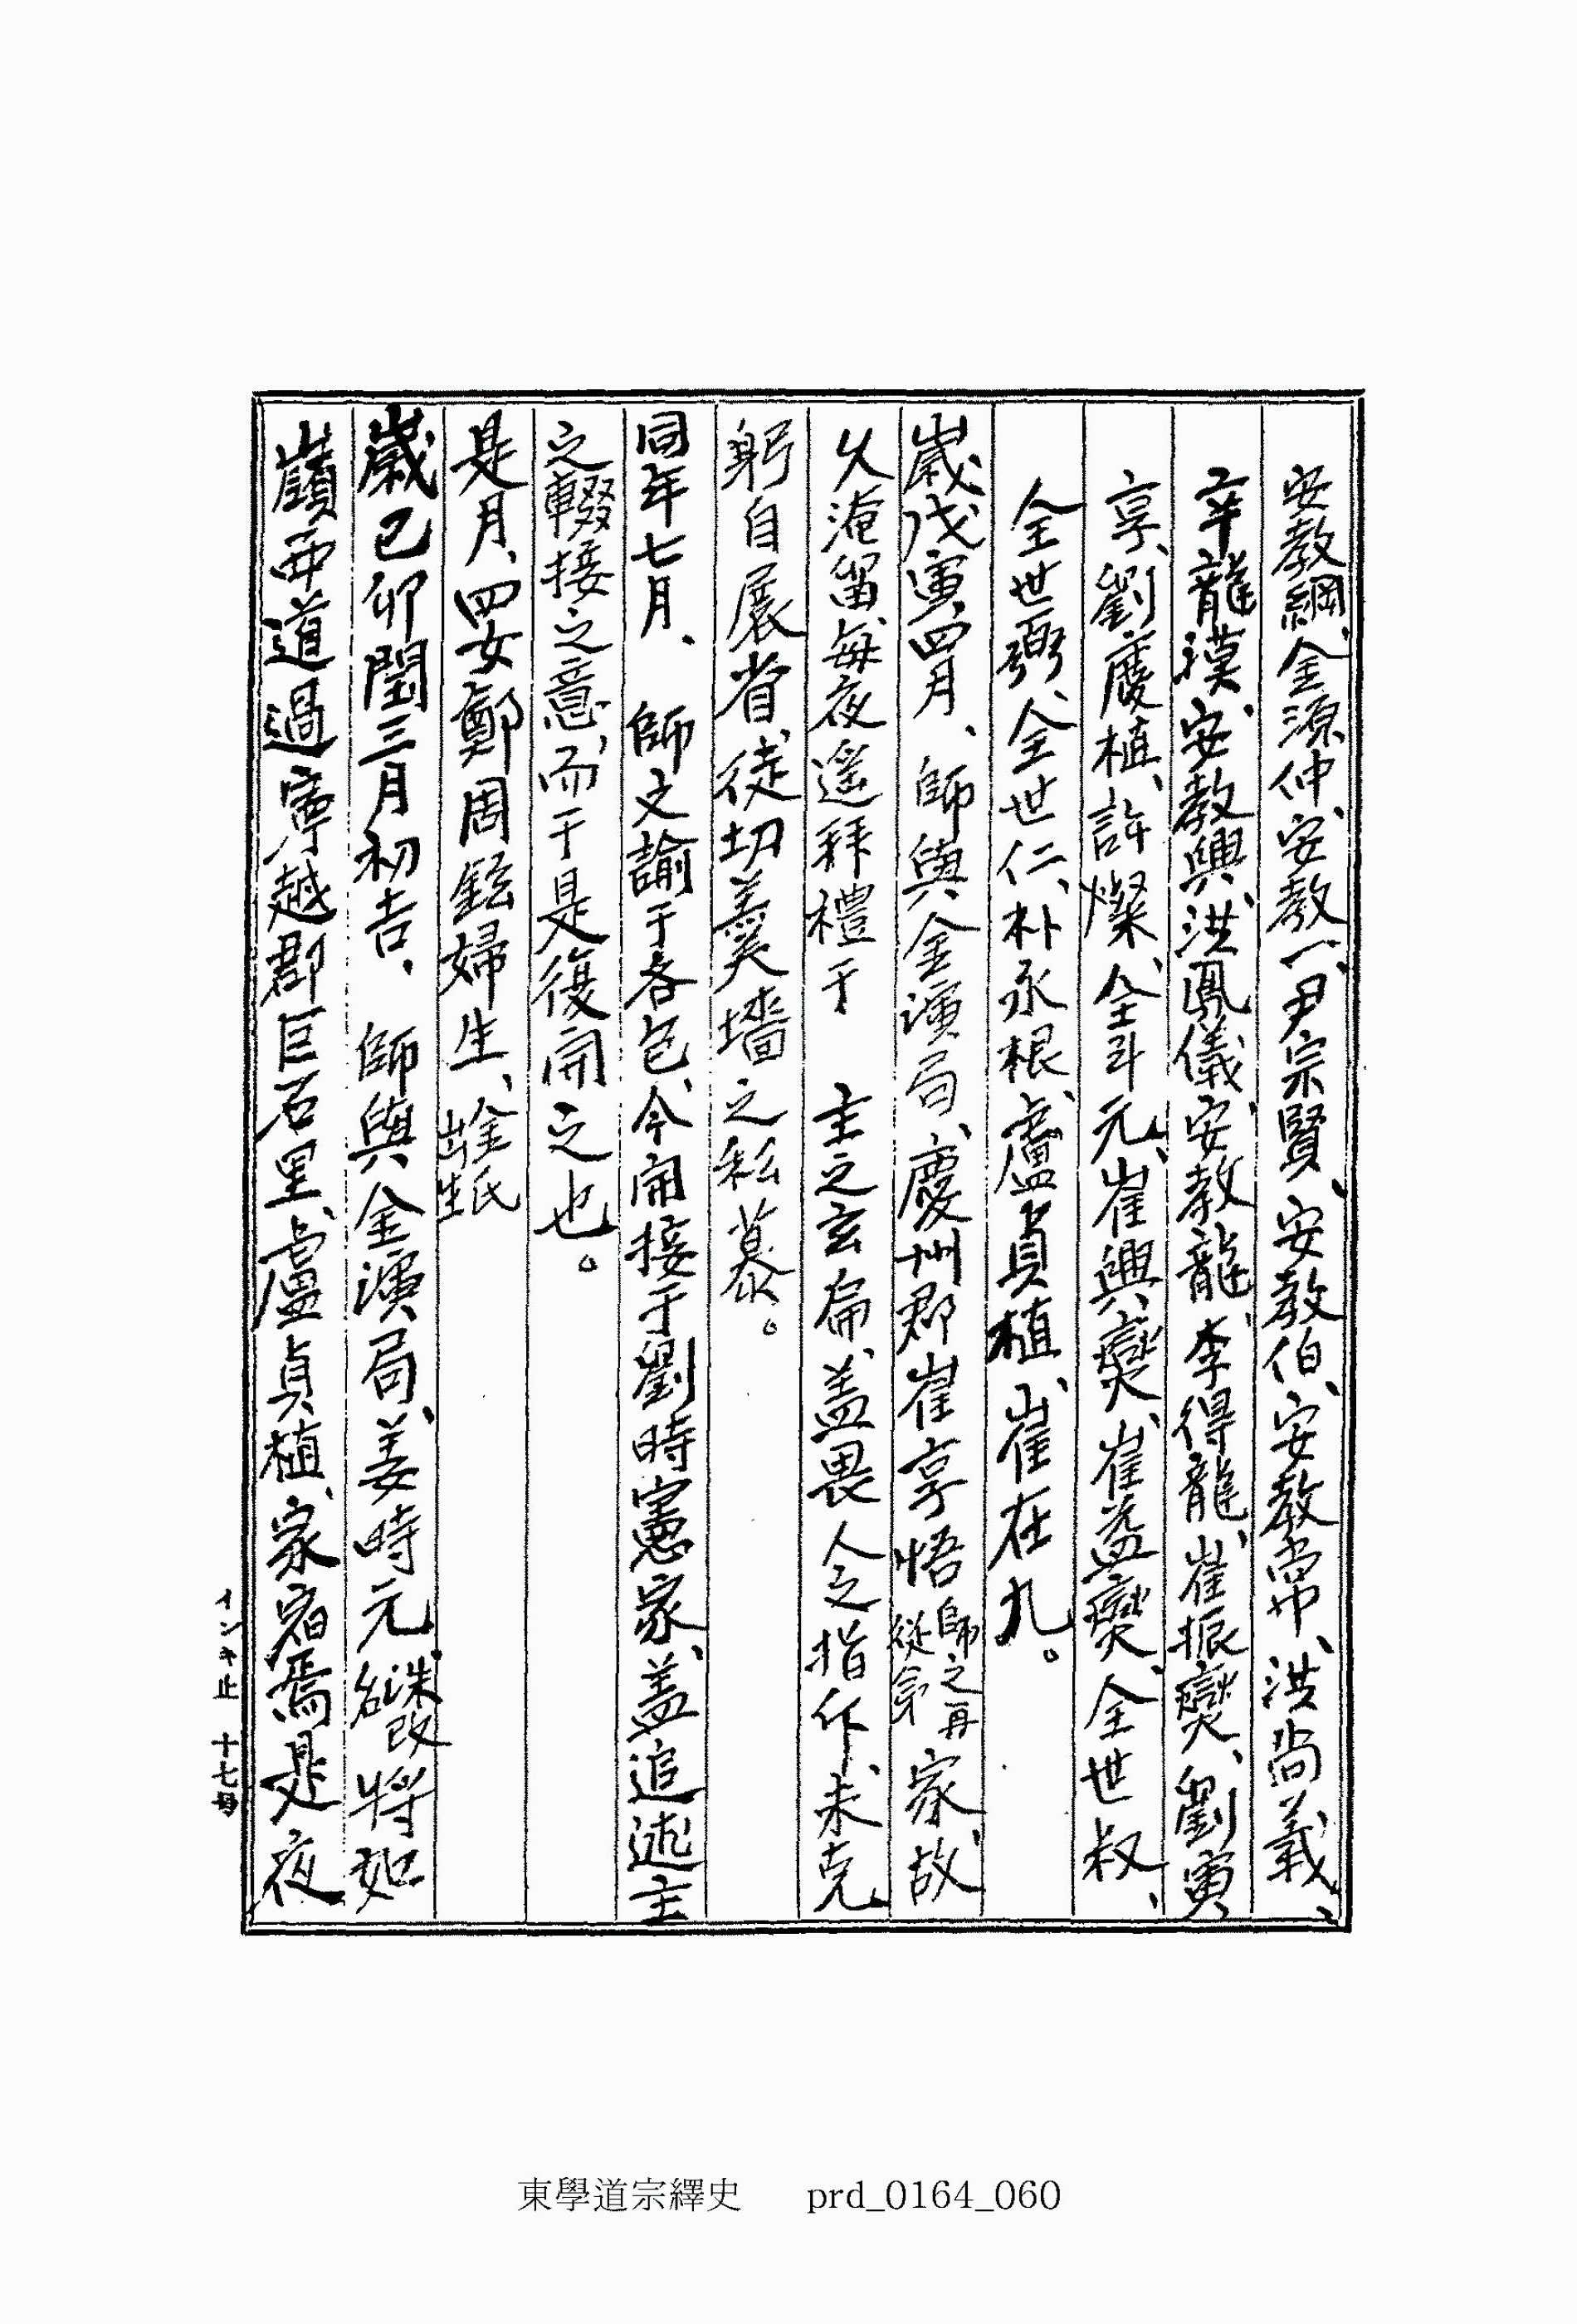 安教綱、金源仲、安教一、尹宗賢、安教伯、安教常、洪尚義、
辛龍漢、安教興、洪鳳儀、安教龍、李得龍、崔振燮、劉寅
享、劉慶植、許燦、全斗元、崔興燮、崔益燮、全世叔、
全世弼、全世仁、朴永根、盧貞植、崔在九。
歲戊寅、四月、師與金演局、慶州郡崔享悟師之再從弟家、故
久淹留、每夜遥拜禮于 主之玄扁、盖畏人之指斥、未克
躬自展省、徒切羹墻之私慕。
同年七月、 師文諭于各包、今開接于劉時憲家、盖追述主
之輟接之意、而于是復開之也。
是月、四女鄭周鉉婦生、金氏出生
歲己卯閏三月初吉、 師與金演局、姜時元、洙改名將如
嶺西道過寧越郡巨石里、盧貞植、家宿焉是夜
インキ止 十七母
東學道宗繹史 prd_0164_060